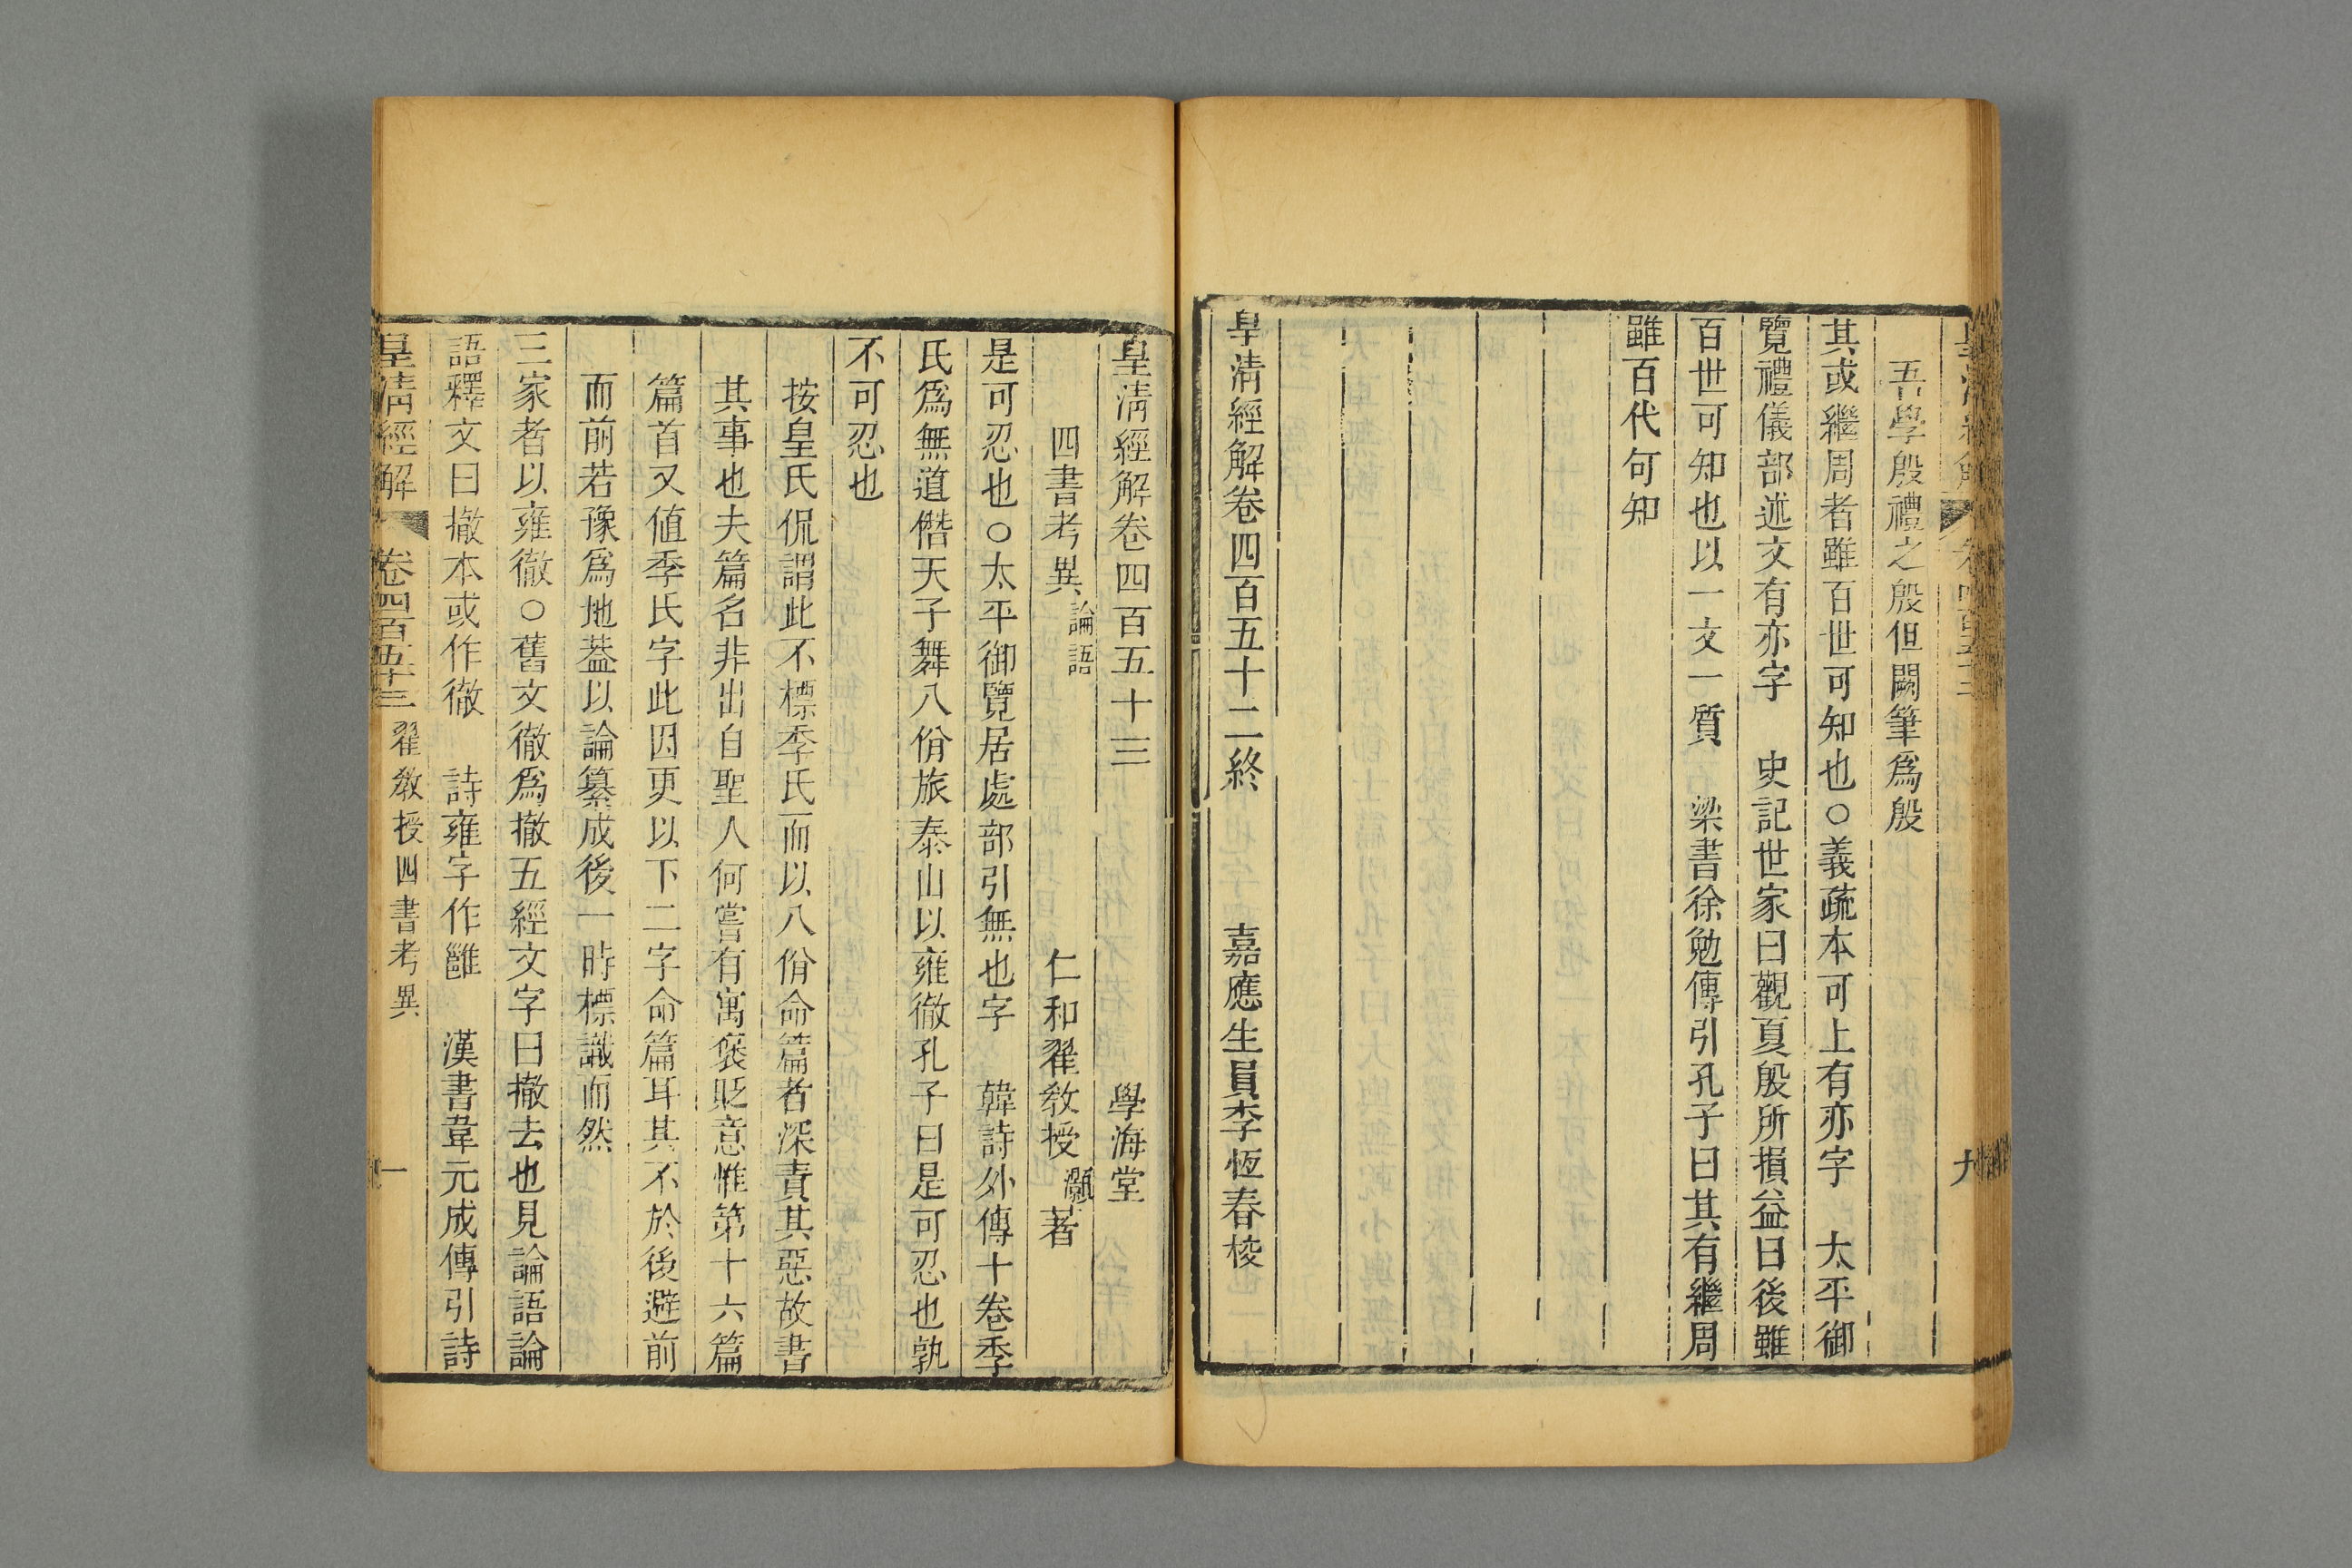 吾學殷禮之殷但闕筆爲殷
其或繼周者雖百世可知也○義疏本可上有亦字　太平御
覽禮儀部述文有亦字　史記世家曰觀夏殷所損益曰後雖
百世可知也以一文一質　梁書徐勉傳引孔子曰其有繼周
雖百代何知
皇清經解卷四百五十二終　嘉應生員李恆春校
九
皇清經解卷四百五十三　學海堂
四書考異論語　仁和翟教授灝著
是可忍也○太平御覽居處部引無也字　韓詩外傳十卷季
氏爲無道僭天子舞八佾旅泰山以雍徹孔子曰是可忍也孰
不可忍也
按皇氏侃謂此不標季氏而以八佾命篇者深責其惡故書
其事也夫篇名非出自聖人何嘗有寓褒貶意惟第十六篇
篇首又値季氏字此因更以下二字命篇耳其不於後避前
而前若豫爲地葢以論纂成後一時標識而然
三家者以雍徹○舊文徹爲撤五經文字曰撤去也見論語論
語釋文曰撤本或作徹　詩雍字作雝　漢書韋元成傳引詩
皇清經解　卷四百五十三　翟教授四書考異　一